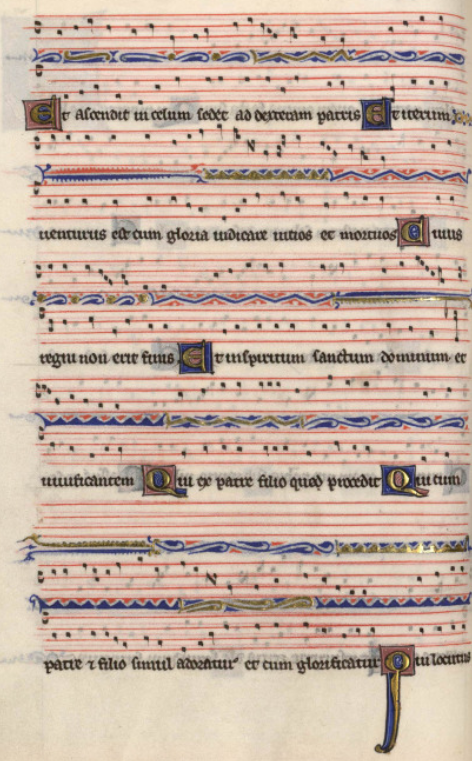 Et ascendit in celum sedet ad dexteram patris Et iterum
uenturus est cum gloria iudicare uiuos et mortuos Cuius
regni non erit finis Et in spiritum sanctum dominum et
uiuificantem Qui ex patre filio quod procedit Qui cum
patre ⁊ filio simul adoratur et cum glorificatur Qui locutus